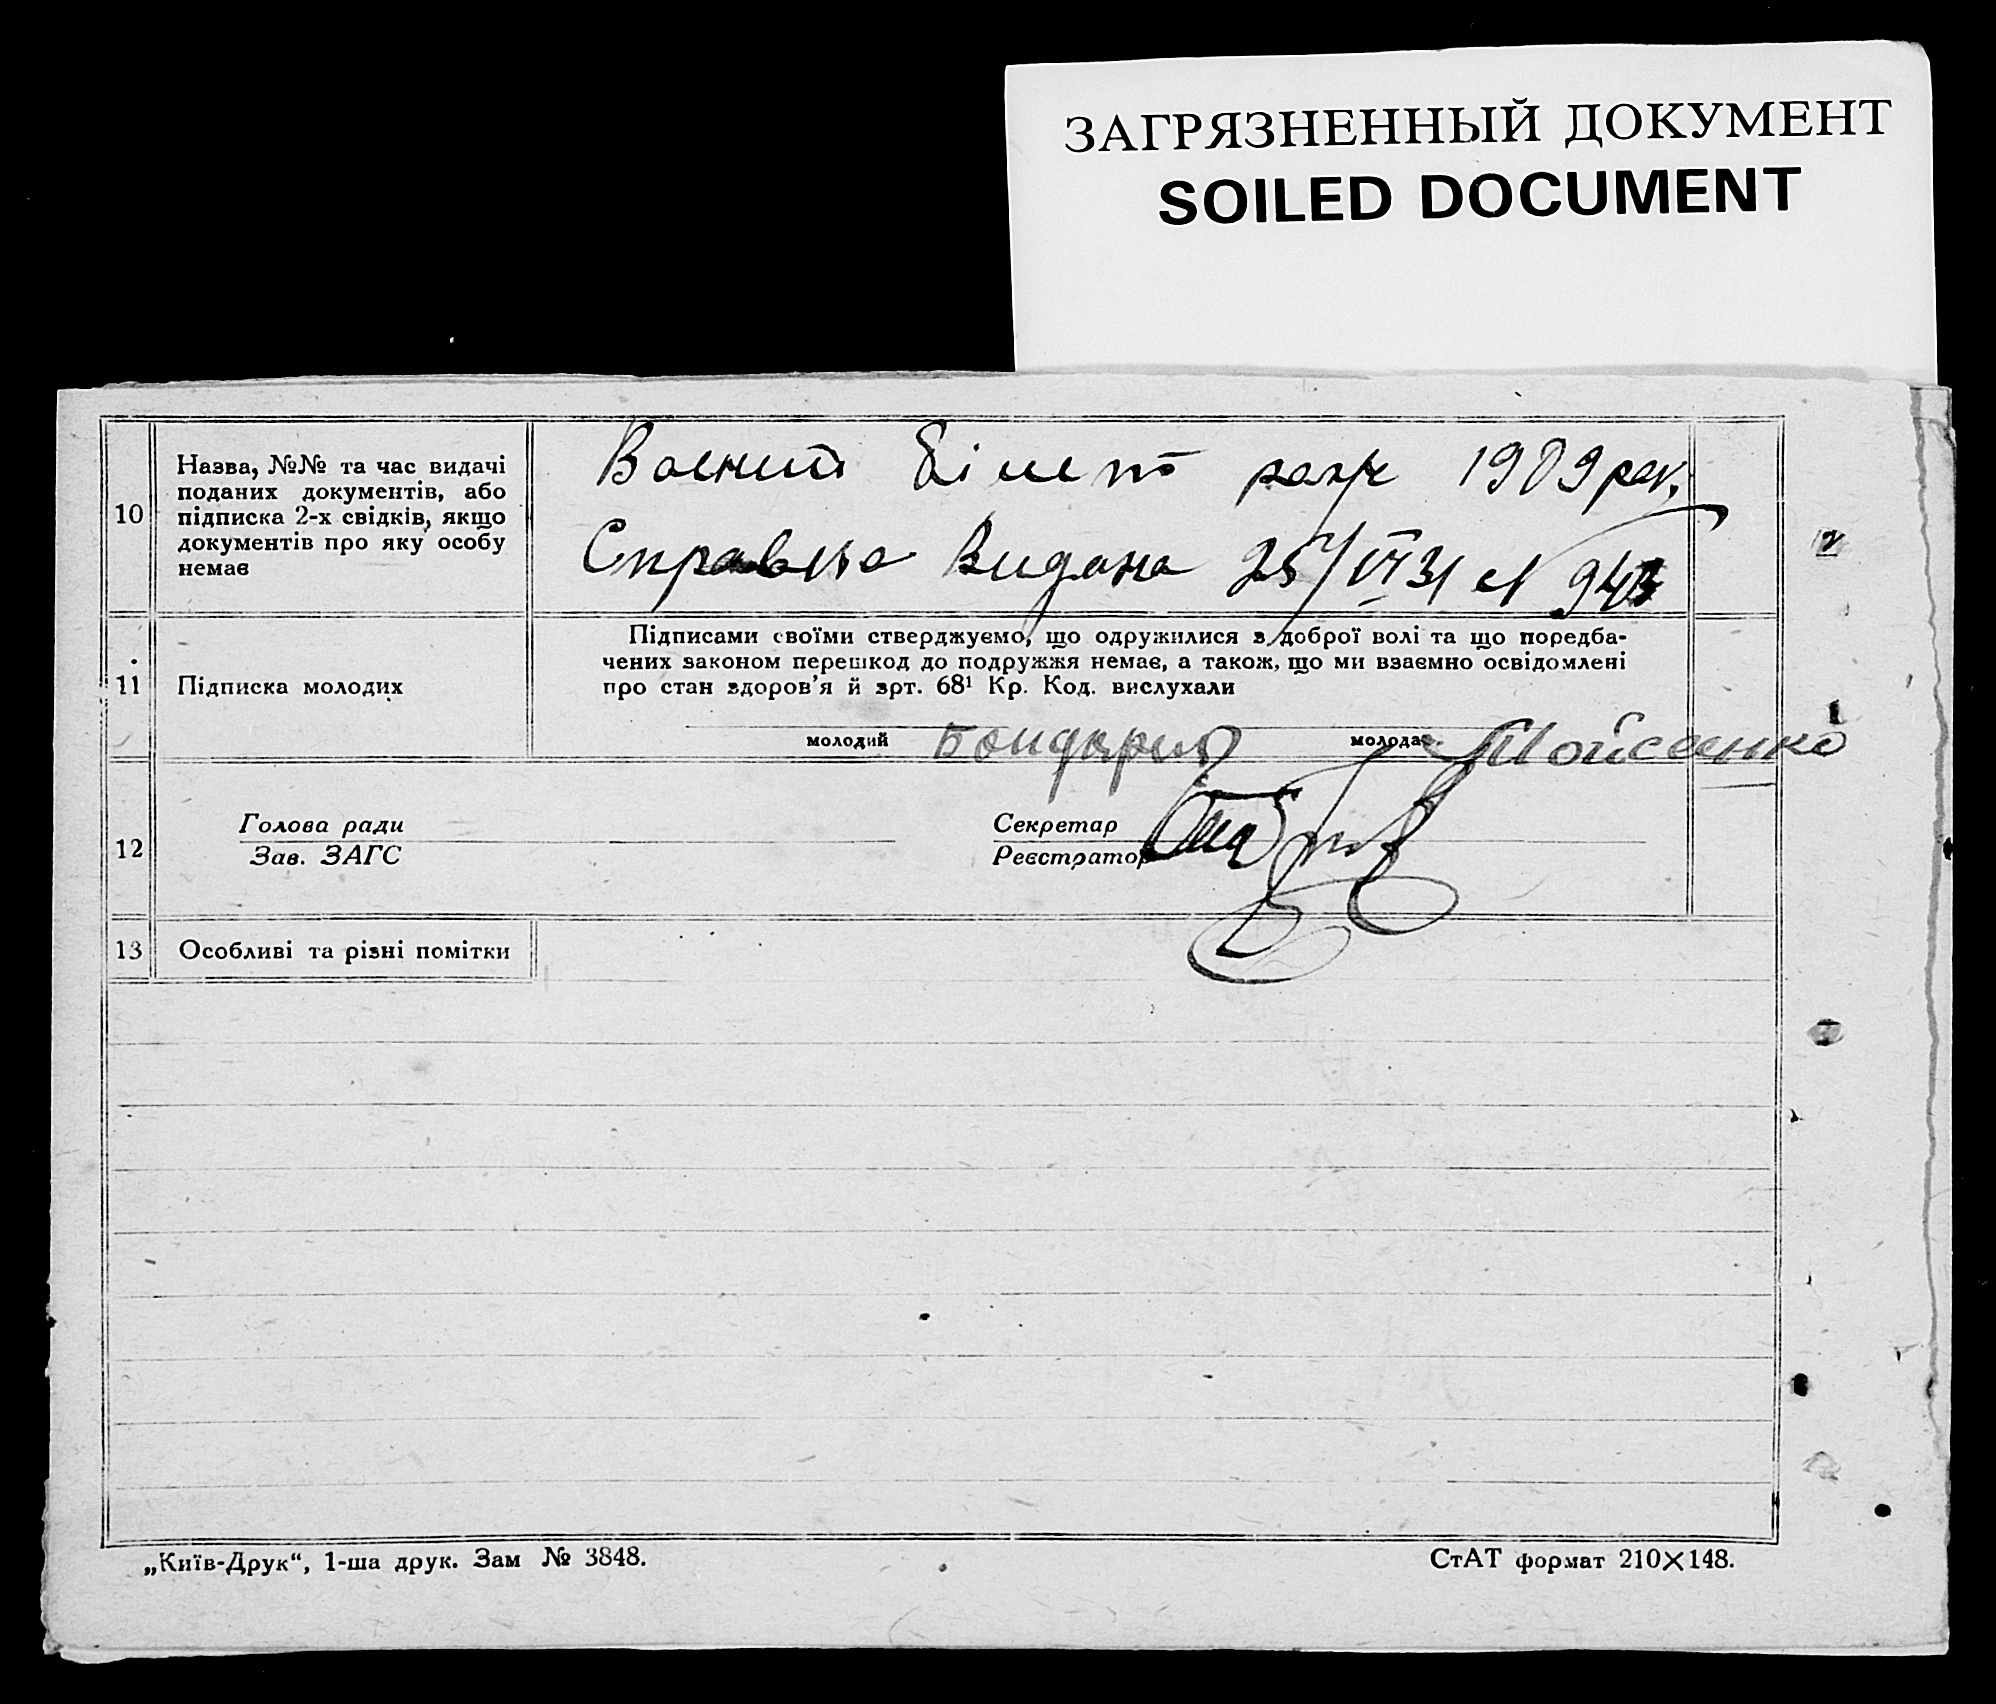 ЗАГРЯЗНЕННЫЙ ДОКУМЕНТ
SOILED DOCUMENT
10
Назва, №№ та час видачі
поданих документів, або
підписка 2-х свідків, якщо
документів про яку особу
немає
Воєний білет 1909 рок.
Справка Видана 25/VI 31 N 943
11
Підписка молодих
Підписами своїми стверджуємо, що одружилися з доброї волі та що поредба-
чених законом перешкод до подружжя немає, а також, що ми взаємно освідомлені
про стан здоров'я й арт. 68¹ Кр. Код. вислухали
молодий Бондарик молода Мойсеенко
12
Голова ради
Зав. ЗАГС
Секретар
Реєстратор
13
Особливі та різні помітки
„Київ-Друк“, 1-ша друк. Зам № 3848.
СтАТ формат 210×148.